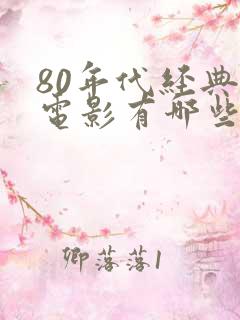 80年代經典
電影有哪些
卿落落1